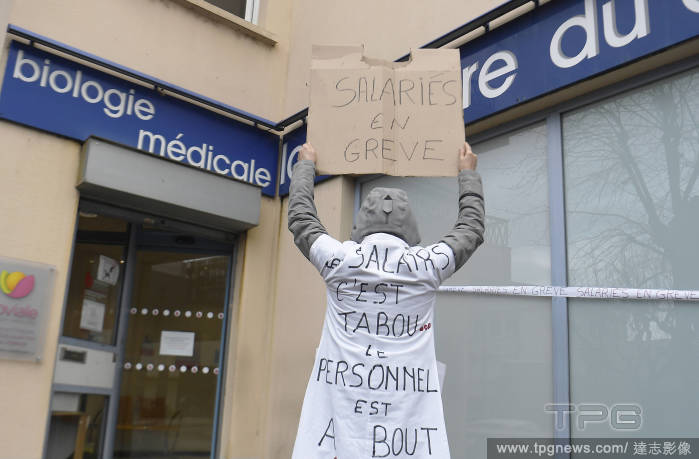 biologie
médicale
re du
SALARIÉS
EN
GREVE
SALAIRS
C'EST
TABOU...
LE
PERSONNEL
EST
A BOUT
SALARIÉS EN GRÈVE SALARIÉS EN GRÈVE
oviale
TPG
www.tpgnews.com/達志影像